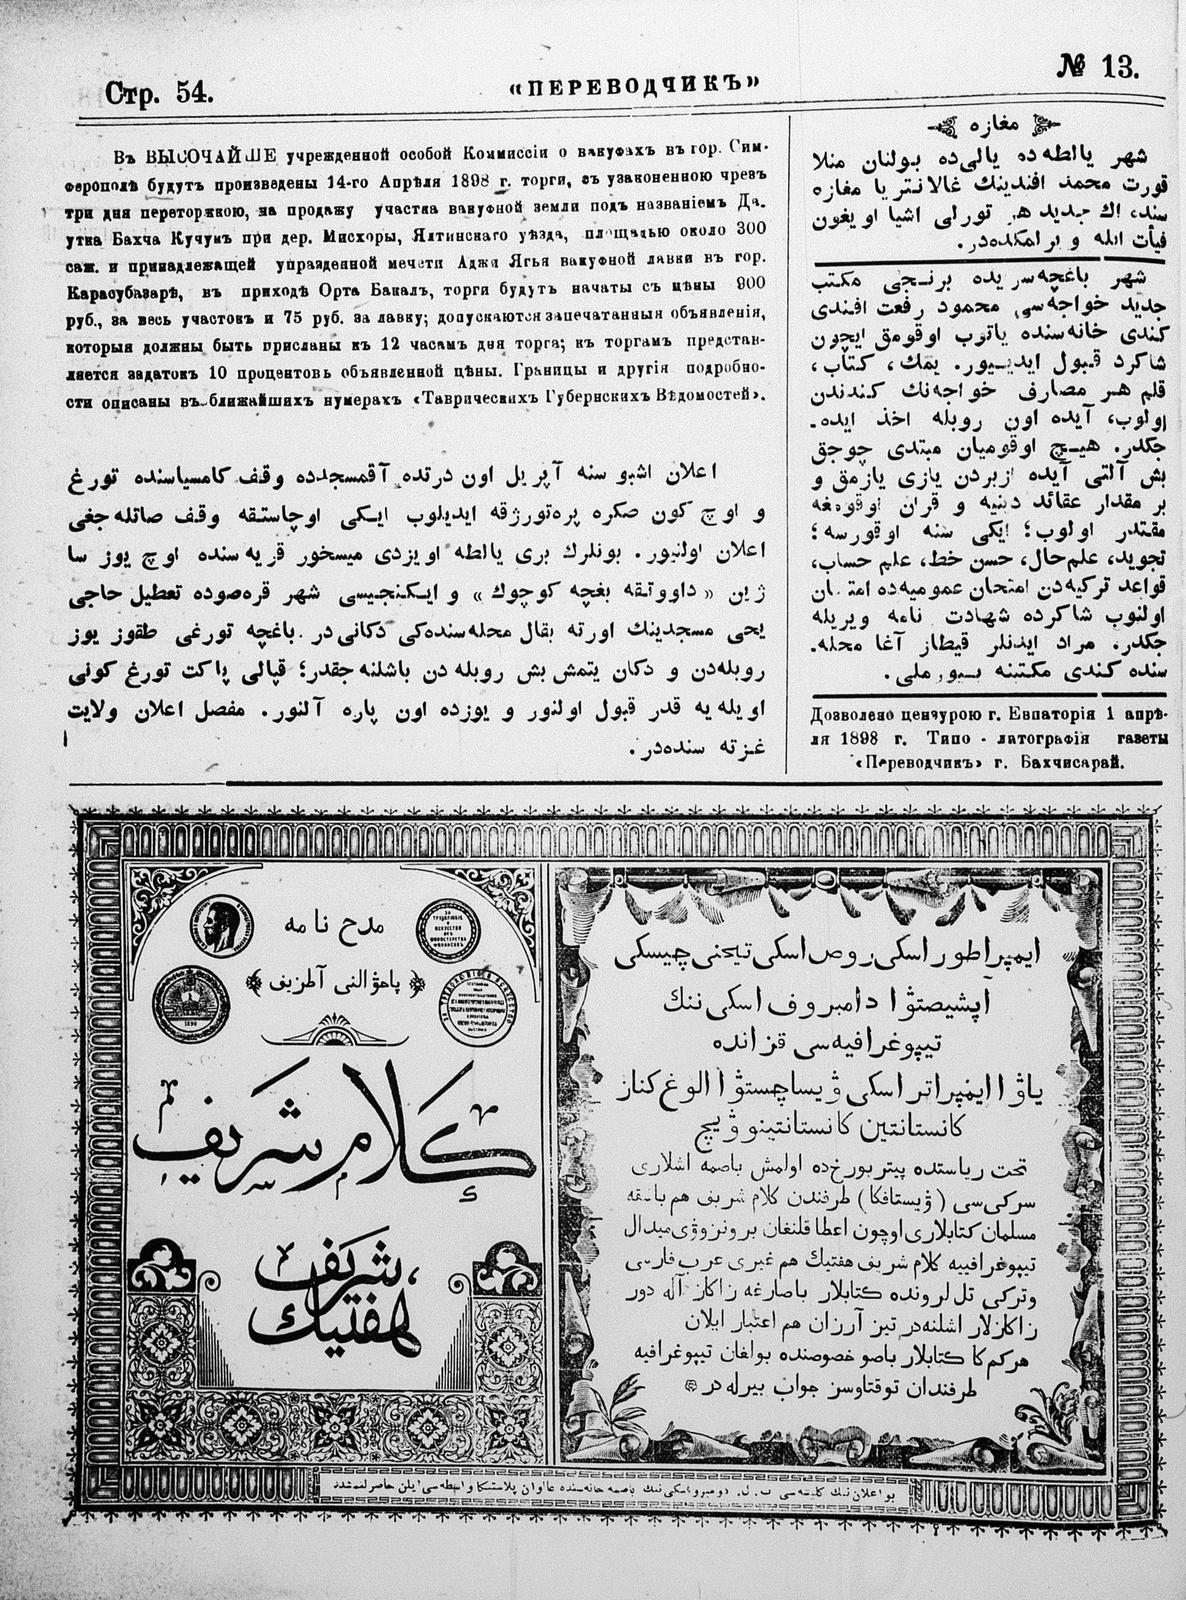 Стр. 54.
«ПЕРЕВОДЧИКЪ»
№ 13.
Въ ВЫСОЧАЙШЕ учрежденной особой Коммиссіи о вакуфахъ въ гор. Сим-
ферополѣ будутъ произведены 14-го Апрѣля 1898 г. торги, съ узаконенною чрезъ
три дня переторжкою, на продажу участка вакуфной земли подъ названіемъ Да-
утка Бахча Кучукъ при дер. Мисхоры, Ялтинскаго уѣзда, площадью около 300
саж. и принадлежащей упраздненной мечети Аджи Ягъя вакуфной лавки въ гор.
Карасубазарѣ, въ приходѣ Орта Бакалъ, торги будутъ начаты съ цѣны 900
руб., за весь участокъ и 75 руб. за лавку; допускаются запечатанныя объявленія,
которыя должны быть присланы къ 12 часамъ дня торга; къ торгамъ представ-
ляется задатокъ 10 процентовъ объявленной цѣны. Границы и другія подробно-
сти описаны въ ближайшихъ нумерахъ «Таврическихъ Губернскихъ Вѣдомостей».
اعلان اشبو سنه آپریل اون درتده آقمسجدده وقف کامسیاسنده تورغ
و اوچ کون صکره پره‌تورژقه ایدیلوب ایکی اوچاستقه وقف صاتله‌جغی
اعلان اولنیور. بونلرك بری یالطه اویزدی میسخور قریه‌سنده اوچ یوز سا
ژین «داووتقه بغچه کوچوك» و ایکنجیسی شهر قره‌صوده تعطیل حاجی
یحی مسجدینك اورته بقال محله‌سنده‌کی دکانی‌در. باغچه تورغی طقوز یوز
روبله‌دن و دکان یتمش بش روبله دن باشلنه جقدر؛ قپالی پاکت تورغ کونی
اویله‌یه قدر قبول اولنور و یوزده اون پاره آلنور. مفصل اعلان ولایت
غزته سنده‌در.
مغازه
شهر یالطه‌ده یالی‌ده بولنان منلا
قورت محمد افندینك غالانتریا مغازه
سنده، اك جدید هر تورلی اشیا اویغون
فیأت ایله ویرلمکده‌در.
شهر باغچه‌سرایده برنجی مکتب
جدید خواجه‌سی محمود رفعت افندی
کندی خانه‌سنده یاتوب اوقومق ایچون
شاکرد قبول ایدییور. یمك، کتاب،
قلم هر مصارف خواجه‌نك کندندن
اولوب، آیده اون روبله اخذ ایده‌-
جکدر. هیچ اوقومیان مبتدی چوجق
بش آلتی آیده ازبردن یازی یازمق و
بر مقدار عقائد دینیه و قران اوقومغه
مقتدر اولوب؛ ایکی سنه اوقورسه؛
تجوید، علم‌حال، حسن خط، علم حساب،
قواعد ترکیه‌دن امتحان عمومیه‌ده امتحان
اولنوب شاکرده شهادت نامه ویریله
جکدر. مراد ایدنلر قیطاز آغا محله‌-
سنده کندی مکتبنه بیورملی.
Дозволено цензурою г. Евпаторія 1 апрѣ-
ля 1898 г. Типо - литографія газеты
«Переводчикъ» г. Бахчисарай.
مدح نامه
پاحوالنی آطزیفی
1896
كلام شریف
هفتیك شریف
ایمپراطور اسکی روص اسکی تیخنی چیسکی
آپشیصتوا دامبروف اسکی ننك
تیپوغرافیه‌سی قزانده
یاوا ایمپراتر اسکی ویساچستوا الوغ کناز
کانستانتین کانستانتینوویچ
تحت ریاستده پیتربورخ‌ده اولمش باصمه اشلاری
سرکی‌سی (ویستافکا) طرفندن کلام شریف هم باشقه
مسلمان کتابلاری اوچون اعطا قلنغان برونزوی میدال
تیپوغرافییه کلام شریف هفتیك هم غیری عرب فارسی
وترکی تل لرونده کتابلار باصارغه زاکاز آله دور
زاکازلار اشلنه‌در تیز آرزان هم اعتبار ایلان
هرکم کا کتابلار باصو خصوصنده بولغان تیپوغرافیه
طرفندان توقتاوسز جواب بیرله در